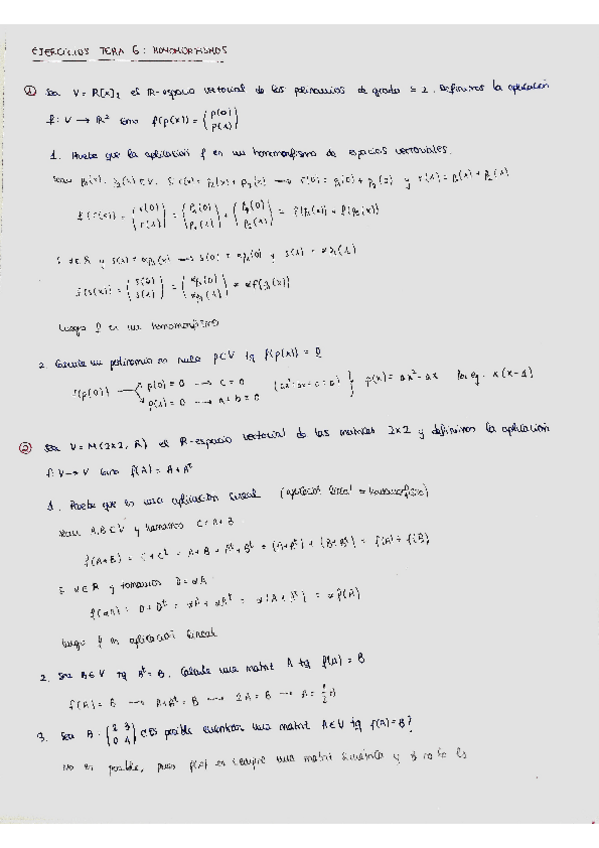 EJERCICIOS TEMA 6: HOMOMORFISMOS
① Sea V = R[x]₂ el R-espacio vectorial de los polinomios de grado ≤ 2. Definimos la aplicación
f: V → R² como f(p(x)) = (p(0) p(1))
1. Pruebe que la aplicación f es un homomorfismo de espacios vectoriales.
Luego f es un homomorfismo
2. Calcule un polinomio no nulo p∈V tq f(p(x)) = 0
p(0) = 0 → c = 0
p(1) = 0 → a+b = 0 p(x) = ax² - ax x(x-1)
② Sea V = M(2x2, R) el R-espacio vectorial de las matrices 2x2 y definimos la aplicación
f: V → V como f(A) = A + Aᵗ
1. Pruebe que es una aplicación lineal (aplicación lineal = homomorfismo)
Sean A,B ∈ V y llamamos C = A + B
f(A+B) = C + Cᵗ = A + B + Aᵗ + Bᵗ = (A+Aᵗ) + (B+Bᵗ) = f(A) + f(B)
α∈R y tomamos D = αA
f(αA) = D + Dᵗ = αA + αAᵗ = α(A + Aᵗ) = αf(A)
Luego f es aplicación lineal
2. Sea B∈V tq Bᵗ = B. Calcule una matriz A tq f(A) = B
f(A) = B → A + Aᵗ = B → 2A = B → A =
3. Sea B = (2 3 0 4) ¿Es posible encontrar una matriz A∈V tq f(A) = B?
No es posible, pues f(A) es siempre una matriz simétrica y B no lo es